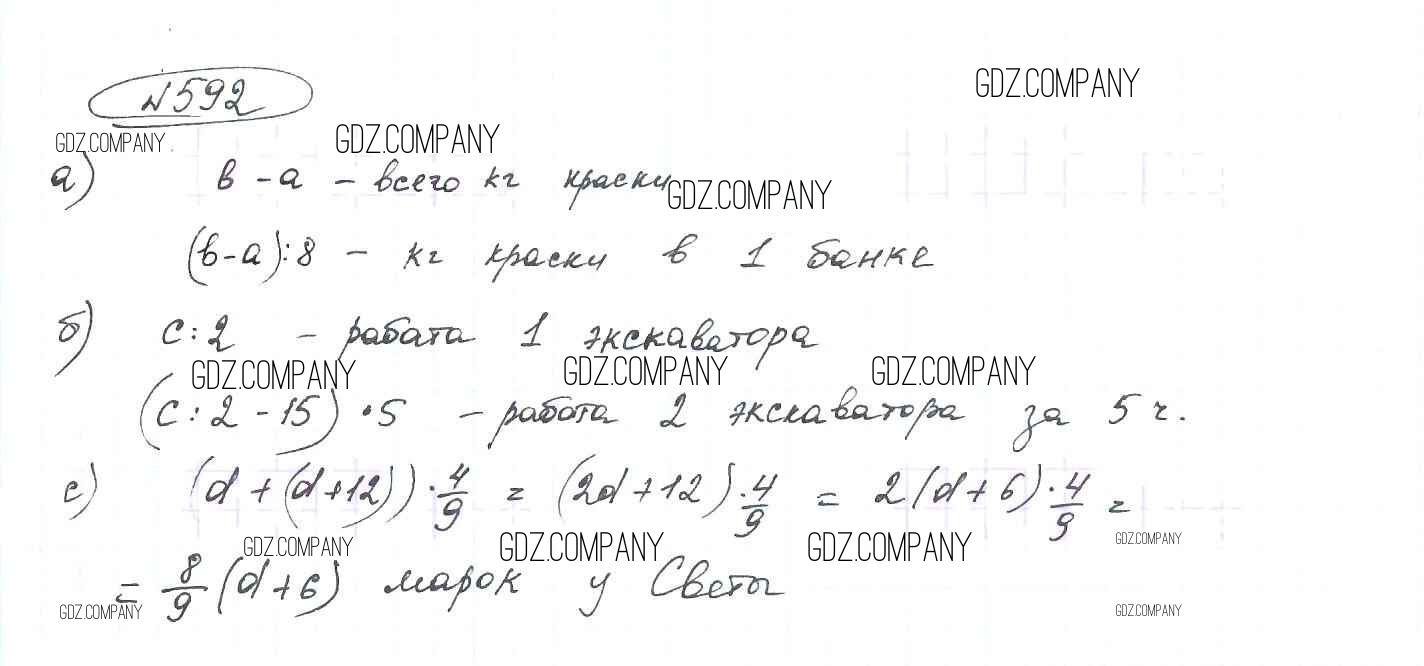 GDZ.COMPANY
№592
GDZ.COMPANY GDZ.COMPANY
а) в - а - всего кг краски GDZ.COMPANY
(в-а):8 - кг краски в 1 банке
б) с:2 - работа 1 экскаватора
GDZ.COMPANY GDZ.COMPANY GDZ.COMPANY
(с:2-15)•5 - работа 2 экскаватора за 5 ч.
с) (d+(d+12))·4/9 = (2d+12)·4/9 = 2(d+6)·4/9 =
GDZ.COMPANY GDZ.COMPANY GDZ.COMPANY GDZ.COMPANY
= 8/9 (d+6) марок у Светы
GDZ.COMPANY GDZ.COMPANY